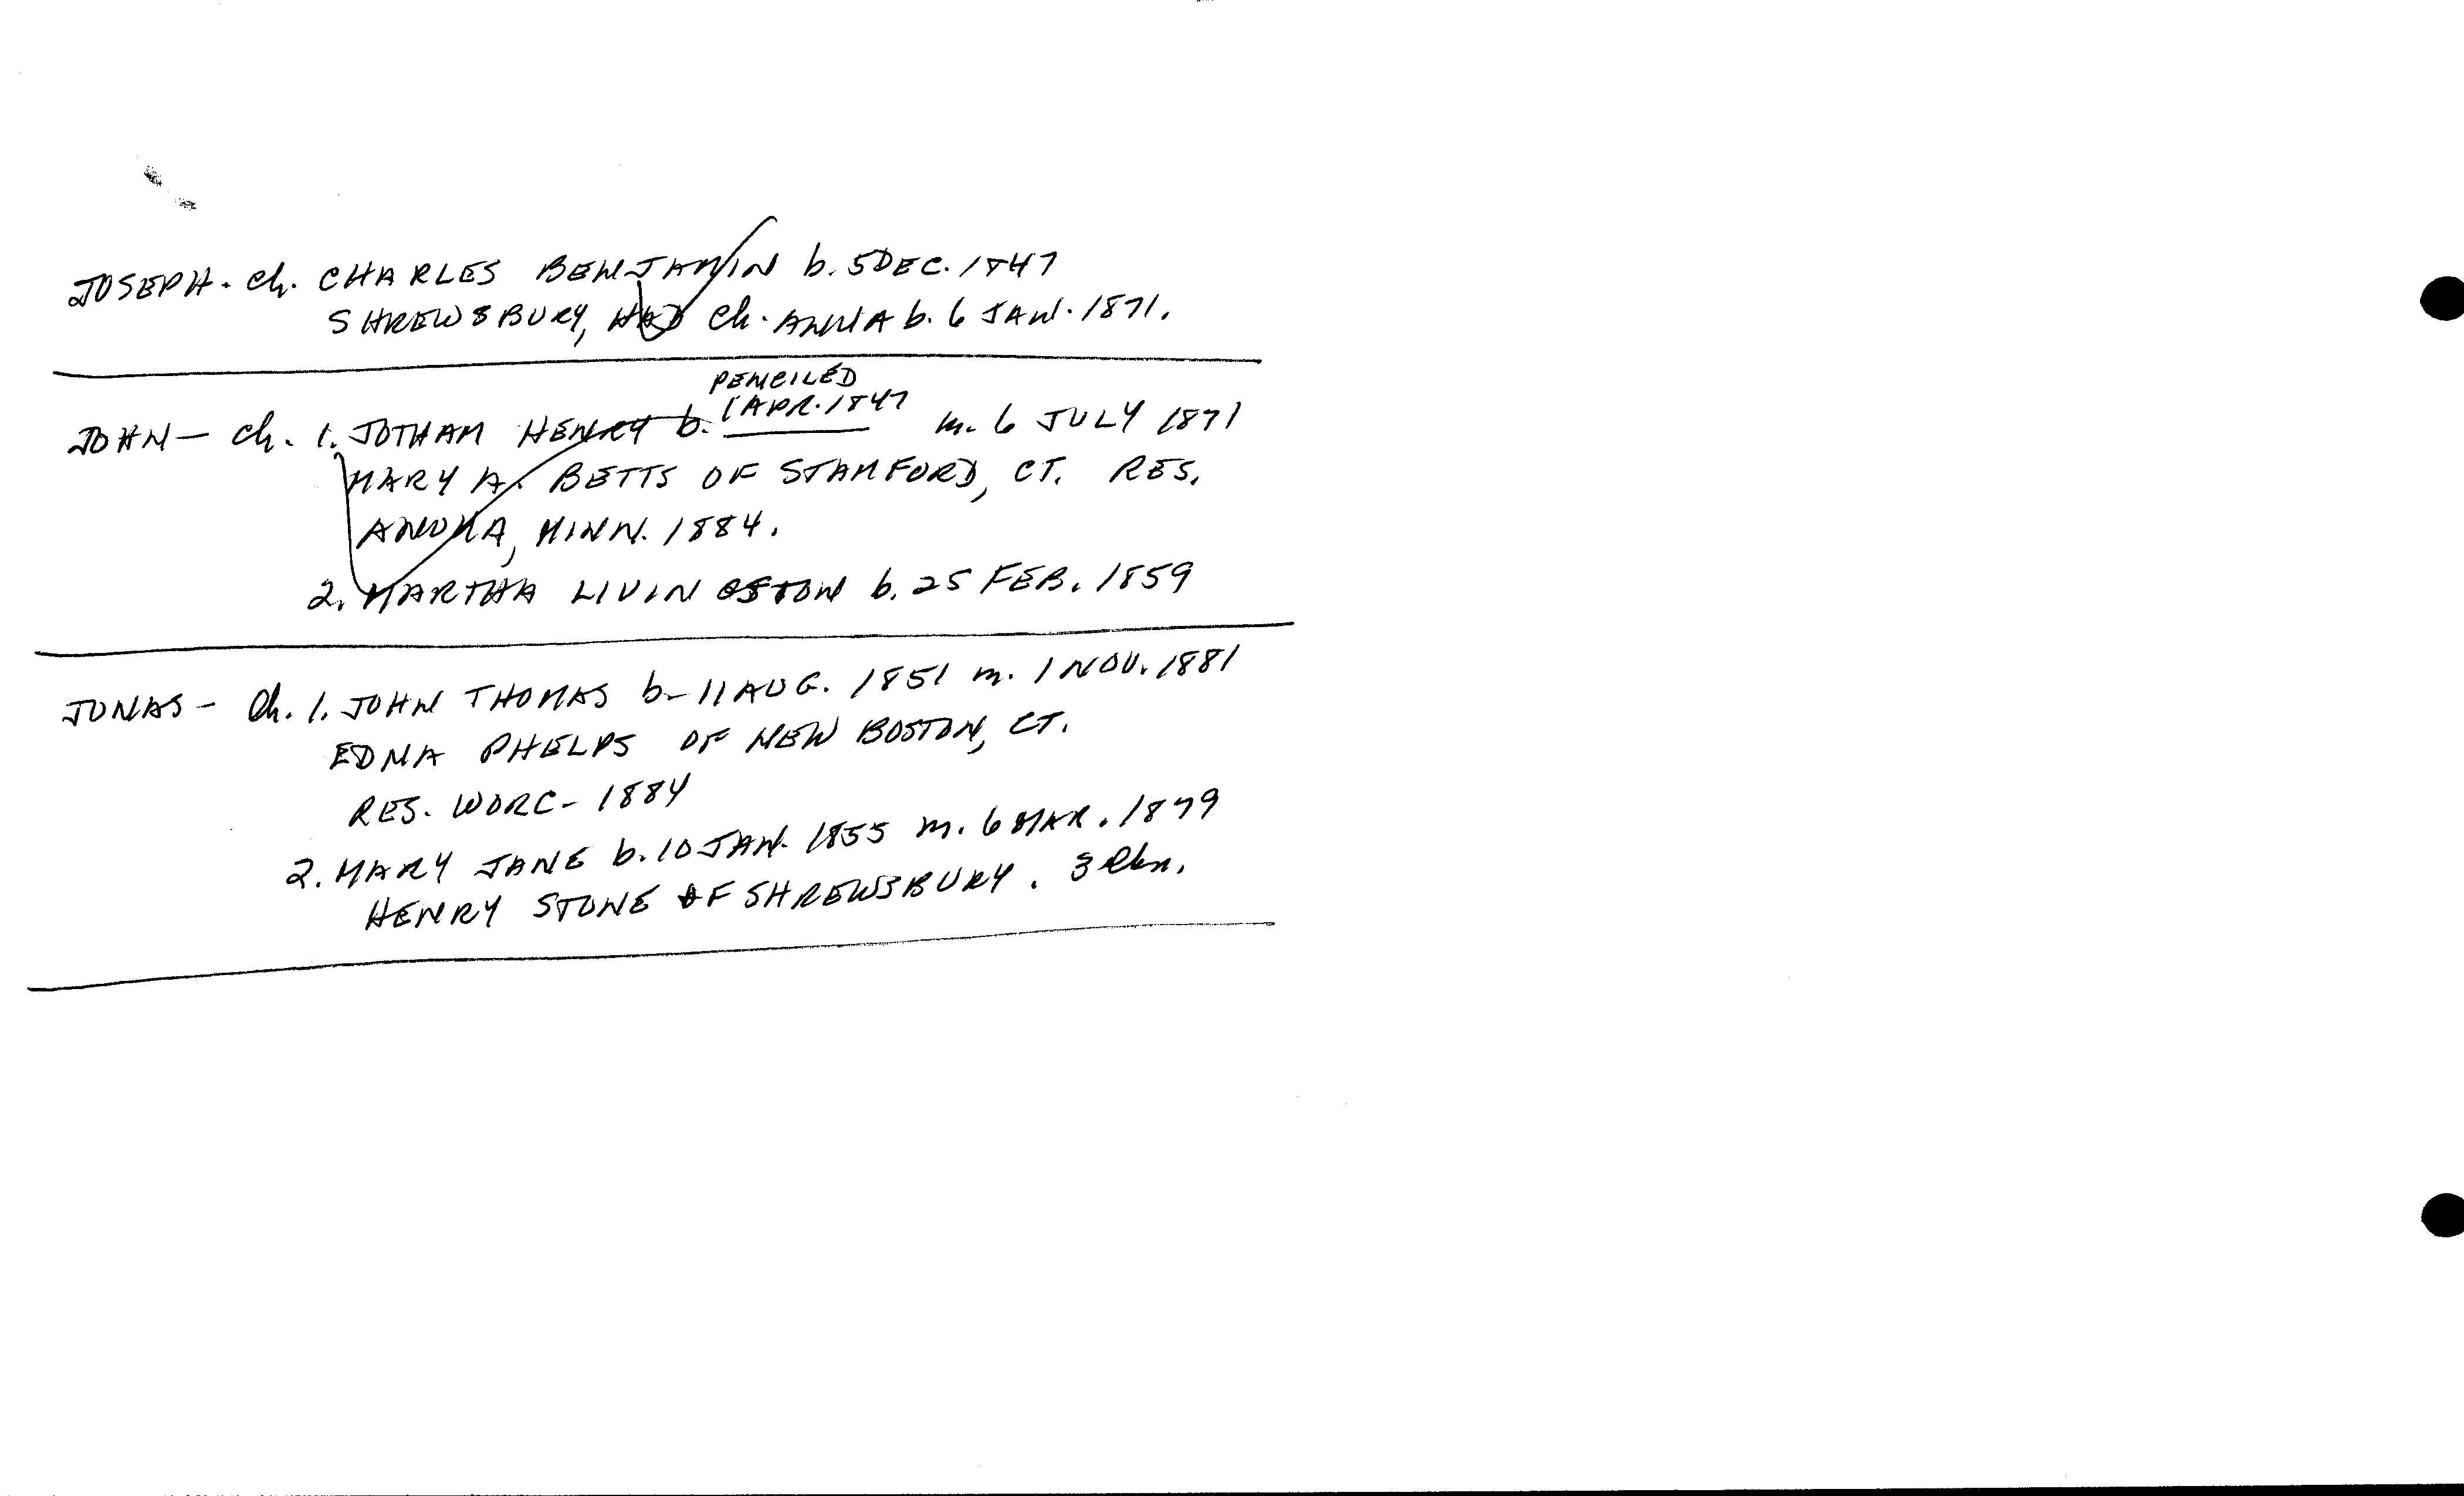 JOSEPH. Ch. CHARLES BENJAMIN b. 5 DEC. 1847
SHREWSBURY, HAD Ch. ANNA b. 6 JAN. 1871.
PENCILED
JOHN — Ch. 1. JOTHAM HENRY b. 1 APR. 1847 m. 6 JULY 1871
MARY A. BETTS OF STAMFORD, CT. RES.
ANOKA, MINN. 1884.
2. MARTHA LIVINGSTON b. 25 FEB. 1859
JONAS - Ch. 1. JOHN THOMAS b- 11 AUG. 1851 m. 1 NOV. 1881
EDNA PHELPS OF NEW BOSTON, CT.
RES. WORC- 1884
2. MARY JANE b. 10 JAN. 1855 m. 6 MAR. 1879
HENRY STONE OF SHREWSBURY. 3 Chn.